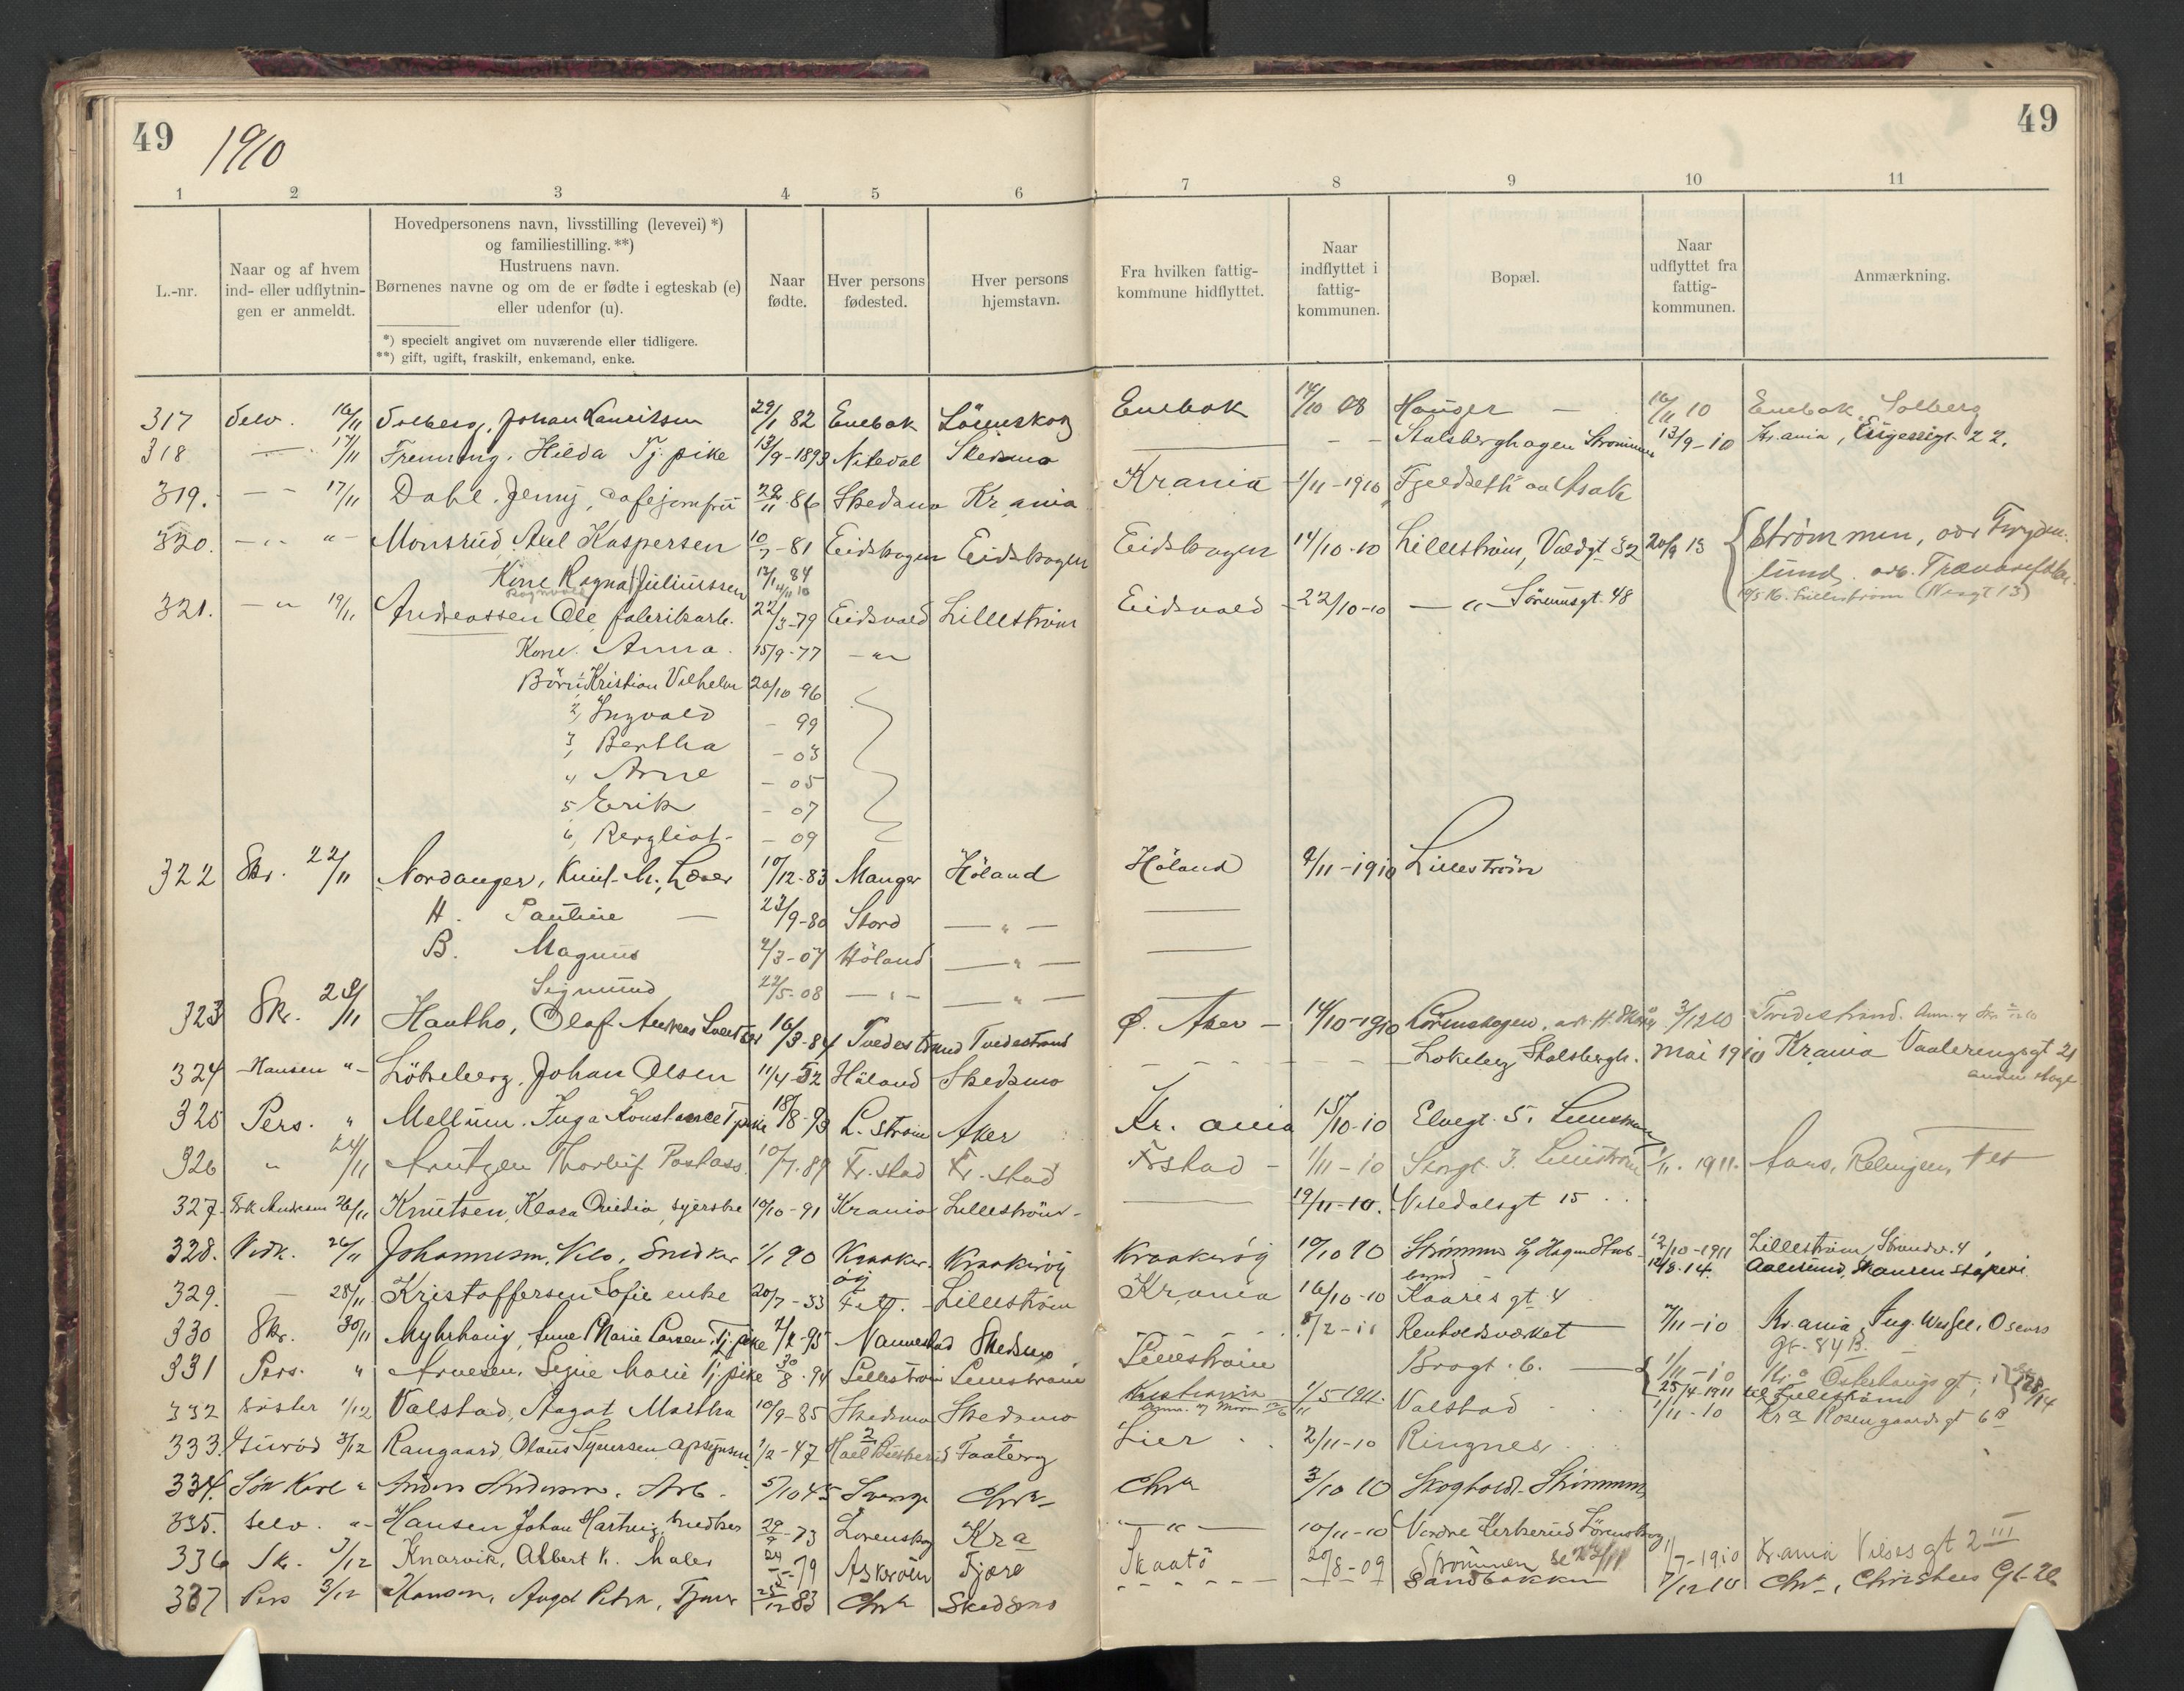 49 1910 49
1 2 3 4 5 6 7 8 9 10 11
L.-nr.
Naar og af hvem
ind- eller udflytnin-
gen er anmeldt.
Hovedpersonens navn, livsstilling (levevei) *)
og familiestilling. **)
Hustruens navn.
Børnenes navne og om de er fødte i egteskab (e)
eller udenfor (u).
*) specielt angivet om nuværende eller tidligere.
**) gift, ugift, fraskilt, enkemand, enke.
Naar
fødte.
Hver persons
fødested.
Hver persons
hjemstavn.
Fra hvilken fattig-
kommune hidflyttet.
Naar
indflyttet i
fattig-
kommunen.
Bopæl.
Naar
udflyttet fra
fattig-
kommunen.
Anmærkning.
317 Selv. 16/11 Solberg, Johan Lauritsen 29/1 82 Enebak Lörenskog Enebak 14/10 08 Hauger — 16/11 10 Enebak, Solberg
318 — 17/11 Frenning, Hilda Tj. pike 13/9-1893 Nitedal Skedsmo — - - Stalsberghagen Strømmen 13/9-10 Kr.ania, 22.
319. — 17/11 Dahl, Jenny, Cafejomfru 29/11-86 Skedsmo Kr ania Krania 1/11-1910 Asak
320. -„- „- Monsrud Axel Kaspersen 10/7-81 Eidskogen Eidskogen Eidskogen 14/10-10 Lilleström, Voldgt 32 20/9 13 Strømmen,
Kone Ragna Juliussen 12/1 84
321. -„- 19/11 Andreassen Ole fabrikarb. 22/3-79 Eidsvold Lilleström Eidsvold 22/10-10 -„- Sörumsgt. 48
Kone. Anna. 15/9-77 -„-
Börn: 1, Kristian Vilhelm 20/10 96
2, Ingvald - 99
3, Bertha - 03
„ Arne - 05
5 Erik - 07
6, Bergliot - 09
322 Skr. 22/11 Nordanger, Knut M., Lærer 10/12-83 Manger Höland Höland 9/11-1910 Lilleström
H. Pauline — 23/9-80 Stord -„- —
B. Magnus 4/3-07 Höland -„- —
Sigmund 22/5-08 -„- -„- —
323 Skr. 28/11 Hautho, Olaf Andreas 16/3-84 Tvedestrand Tvedestrand Ø. Aker - 14/10-1910 Lörenskogen, 3/12 10 Tvedestrand.
324 Hansen „- Lökeberg, Johan Olsen 11/4-52 Höland Skedsmo - - - Lökeberg Stalsbergh. Mai 1910 Krania Vaalerengsgt 21
325 Pers. „ Mellum, Inga Konstance Tj. pike 18/8-93 L. ström Aker Kr. ania 15/10-10 Elvegt. 5. Lilleström
326 „ 24/11 Arntzen Thorleif Postass. 10/7-89 Fr. stad Fr. stad Frstad - 1/11-10 Storgt. 3. Lilleström 1/11. 1911.
327. Frk Andersen 26/11 Knutsen, Klara Ovidia, syerske 10/10-91 Krania Lilleström - — 19/11-10. Nitedalsgt 15
328. Vidk. 26/11 Johannesen, Nils, Snedker 1/1 90 Kraakerøy Kraakerøy Kraakerøy 10/10 10 Strømmen 12/10-1911 Lilleström, 4,
14/8-14. Aalesund,
329. — 28/11 Kristoffersen Sofie enke 20/7-33 Fet. Lilleström Krania 16/10-10 Kaares gt 4
330 Skr. 30/11 Myhrhaug, Anne Marie Larsen, Tj. pike 2/2-95 Nannestad Skedsmo - - - Renholdsværket — 7/11-10 Kr.ania, Oscars
gt. 84 B.
331 Pers. „ Arnesen, Signe Marie Tj. pike 30/8-94 Lilleström Lilleström Lilleström Brogt. 6. — 1/11-10 Kra Österhaugsgt.
25/4-1911 til Lilleström
332 söster 1/12 Valstad, Aagot Martha 10/9-85 Skedsmo Skedsmo Kristiania 1/5 1911. Valstad 1/11-10 Kra Rosengaardsgt 6 B
333. 3/12 Rangaard, Olaus Syversen 1/2-47 Faaberg Lier 2/11-10 Ringnes
334. Søn Karl „ Anders Andersen. Arb. 5/10 45 Sverige Chra Chra 3/10 10 Skoghold. Strømmen
335. Selv. „- Hansen Johan Hartvig, Snedker 29/9-73 Lørenskog Kra -„- 10/11-10 Nordre Kirkerud Lörenskog
336 Sk. 3/12 Knarvik, Albert K. Maler 24/5-79 Askvoll Fjære Skaatö 20/8-09 Strömmen 1/7-1910 Kr.ania gt 2 III
337 Pers 3/12 Hansen, Aagot Petra, Tjener 25/12 83 Chra Skedsmo - - - Sandbakken 7/12 10 Chra, Christies Gt. 26